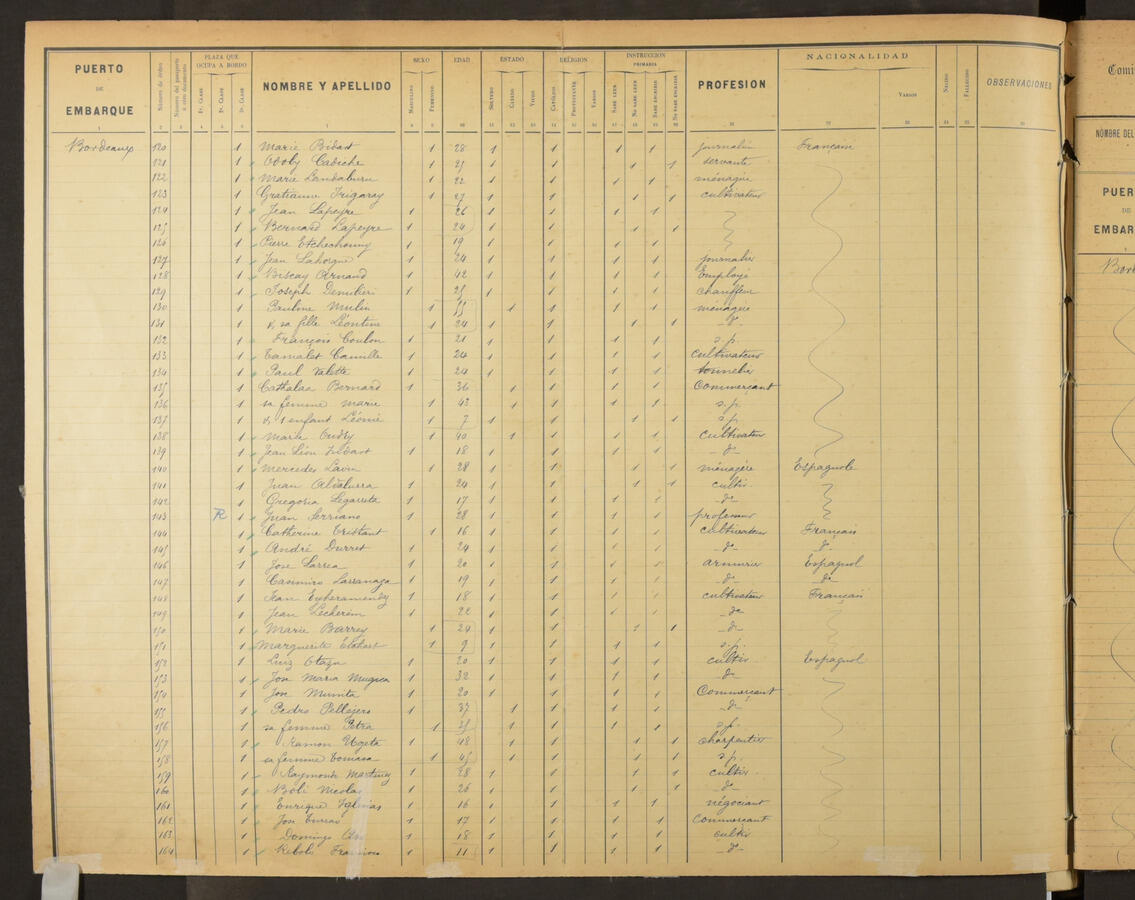 PUERTO DE EMBARQUE
Número de órden
Número del pasaporte u otro documento
PLAZA QUE OCUPA A BORDO
1ª. CLASE
2ª. CLASE
3ª. CLASE
NOMBRE Y APELLIDO
SEXO
MASCULINO
FEMENINO
EDAD
ESTADO
SOLTERO
CASADO
VIUDO
RELIGION
CATÓLICO
PROTESTANTE
VARIOS
INSTRUCCION PRIMARIA
SABE LEER
NO SABE LEER
SABE ESCRIBIR
NO SABE ESCRIBIR
PROFESION
NACIONALIDAD
VARIOS
NACIDO
FALLECIDO
OBSERVACIONES
Bordeaux 120 1 Marie Bidart 1 28 1 1 1 1 journalier Française
121 1 Cadiche 1 25 1 1 1 1 servante
122 1 Marie Landaburu 1 22 1 1 1 1 ménagère
123 1 Gratianne Irigaray 1 27 1 1 1 1 cultivateur
124 1 Jean Lapeyre 1 26 1 1 1 1
125 1 Bernard Lapeyre 1 24 1 1 1 1
126 1 Pierre 1 19 1 1 1 1
127 1 Jean Laborque 1 24 1 1 1 1 journalier
128 1 Biscay Arnaud 1 42 1 1 1 1 Employé
129 1 Joseph 1 25 1 1 1 1 chauffeur
130 1 Pauline Mulin 1 55 1 1 1 1 ménagère
131 1 & sa fille Léontine 1 24 1 1 1 1 _de_
132 1 François Coulon 1 21 1 1 1 1 s.p.
133 1 Camille 1 24 1 1 1 1 cultivateur
134 1 Paul Valette 1 24 1 1 1 1 tonnelier
135 1 Cathalaa Bernard 1 36 1 1 1 1 Commerçant
136 1 sa femme Marie 1 42 1 1 1 1 s.p.
137 1 & 1 enfant Léonie 1 7 1 1 1 1 s.p.
138 1 Marie 1 40 1 1 1 1 cultivateur
139 1 Jean Léon 1 18 1 1 1 1 _de_
140 1 Mercedes Lavin 1 28 1 1 1 1 ménagère Espagnole
141 1 Juan 1 24 1 1 1 1 cultiv.
142 1 Gregoria Legarreta 1 17 1 1 1 1 _de_
143 R 1 Juan Serriano 1 28 1 1 1 1 professeur
144 1 Catherine Tristant 1 16 1 1 1 1 cultivateur Français
145 1 André Durret 1 24 1 1 1 1 _de_ _de_
146 1 Jose Larrea 1 20 1 1 1 1 armurier Espagnol
147 1 Casimiro Larranaga 1 19 1 1 1 1 _de_ _de_
148 1 Jean Eyheramendy 1 18 1 1 1 1 cultivateur Français
149 1 Jean 1 22 1 1 1 1 _de_
150 1 Marie Barrey 1 24 1 1 1 1 _de_
151 1 Marguerite 1 9 1 1 1 1 s.p.
152 1 Luiz 1 20 1 1 1 1 cultiv Espagnol
153 1 Jose Maria Mugica 1 32 1 1 1 1 _de_
154 1 Jose 1 20 1 1 1 1 Commerçant
155 1 Pedro Pellejero 1 37 1 1 1 1 _de_
156 1 sa femme Petra 1 25 1 1 1 1 s.p.
157 1 Ramon 1 48 1 1 1 1 charpentier
158 1 sa femme Tomasa 1 45 1 1 1 1 s.p.
159 1 Raymond Martinez 1 28 1 1 1 1 cultiv
160 1 Nicolas 1 26 1 1 1 1 _de_
161 1 Enrique Iglesias 1 16 1 1 1 1 négociant
162 1 Jose 1 17 1 1 1 1 Commerçant
163 1 Domingo 1 18 1 1 1 1 cultiv
164 1 1 11 1 1 1 1 _de_
Comi
NÚMBRE DEL
PUER
DE
EMBAR
Bord